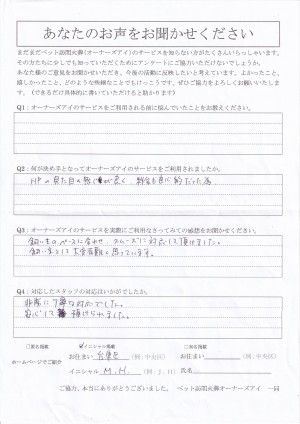 あなたのお声をお聞かせください
まだまだペット訪問火葬(オーナーズアイ)のサービスを知らない方がたくさんいらっしゃいます。
その方たちに少しでも知っていただくためにアンケートにご協力いただけないでしょうか。
あなた様のご意見をお聞かせいただき、今後の活動に反映したいと考えています。よかったこと、
嬉しかったこと、どのような些細なことでもけっこうです。ぜひご協力をよろしくお願いいたしま
す。(できるだけ具体的に書いていただけると助かります)
Q1：オーナーズアイのサービスをご利用される前に悩んでいたことをお教えください。
Q2：何が決め手となってオーナーズアイのサービスをご利用されましたか。
HPの見た目の感じが良く、料金も良心的だった為
Q3：オーナーズアイのサービスを実際にご利用なさってみての感想をお聞かせください。
飼い主のペースに合わせ、スムーズに対応して頂けました。
飼い主として大変有難く思っています。
Q4：対応したスタッフの対応はいかがでしたか。
非常に丁寧な対応でした。
安心して預けられました。
□実名掲載 ☑イニシャル掲載 □匿名掲載
ホームページでご紹介
お住まい 台東区 (例:中央区) お住まい (例:中央区)
イニシャル M.H. 氏名
ご協力、本当にありがとうございました。 ペット訪問オーナーズアイ 一同